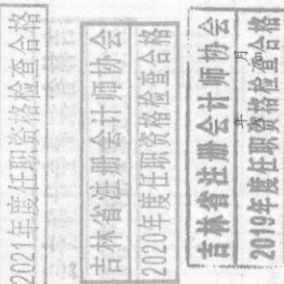 2021年度任职资格检查合格
吉林省注册会计师协会
2020年度任职资格检查合格
吉林省注册会计师协会
年 月
2019年度任职资格检查合格